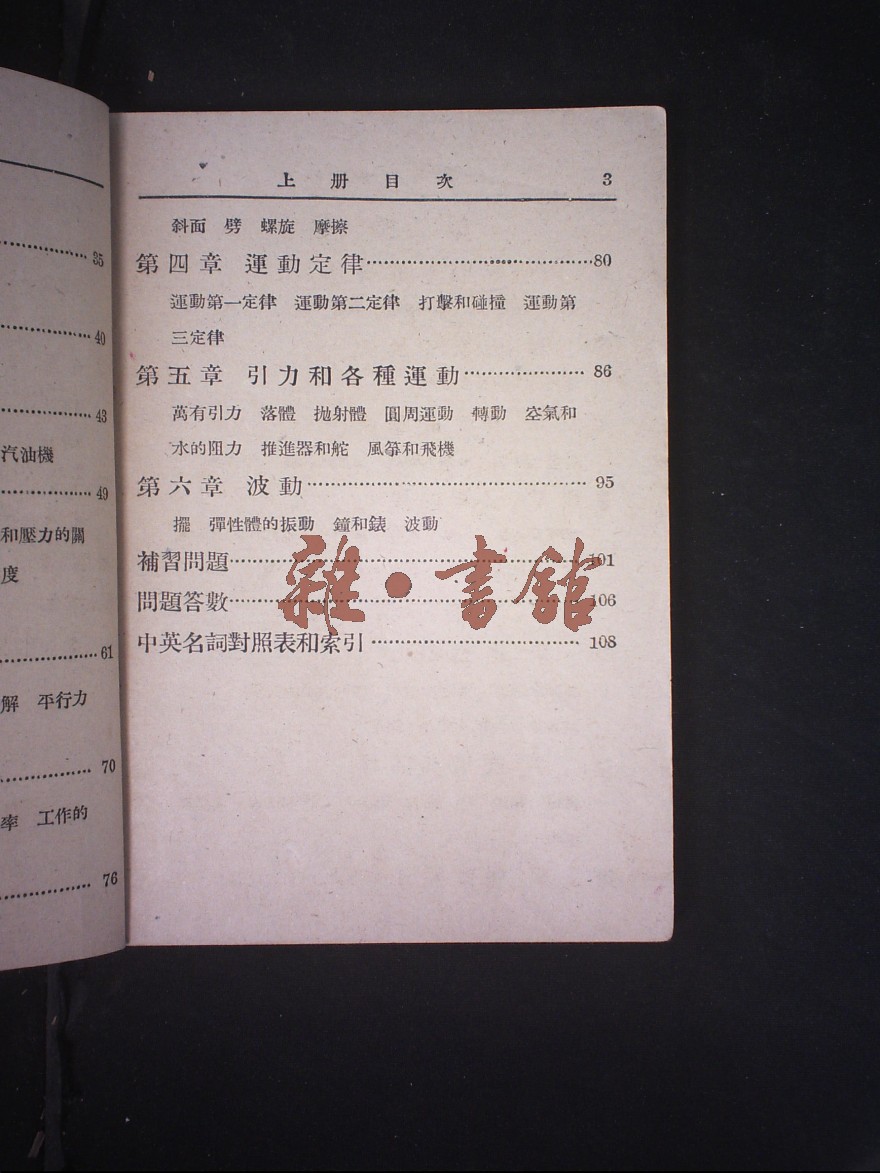 35
40
43
汽油機
49
和壓力的關
度
61
解　平行力
70
率　工作的
76
上册目次　3
斜面　劈　螺旋　摩擦
第四章　運動定律……80
運動第一定律　運動第二定律　打擊和碰撞　運動第
三定律
第五章　引力和各種運動……86
萬有引力　落體　抛射體　圓周運動　轉動　空氣和
水的阻力　推進器和舵　風箏和飛機
第六章　波動……95
擺　彈性體的振動　鐘和錶　波動
補習問題……101
問題答數……106
中英名詞對照表和索引……108
雜·書館